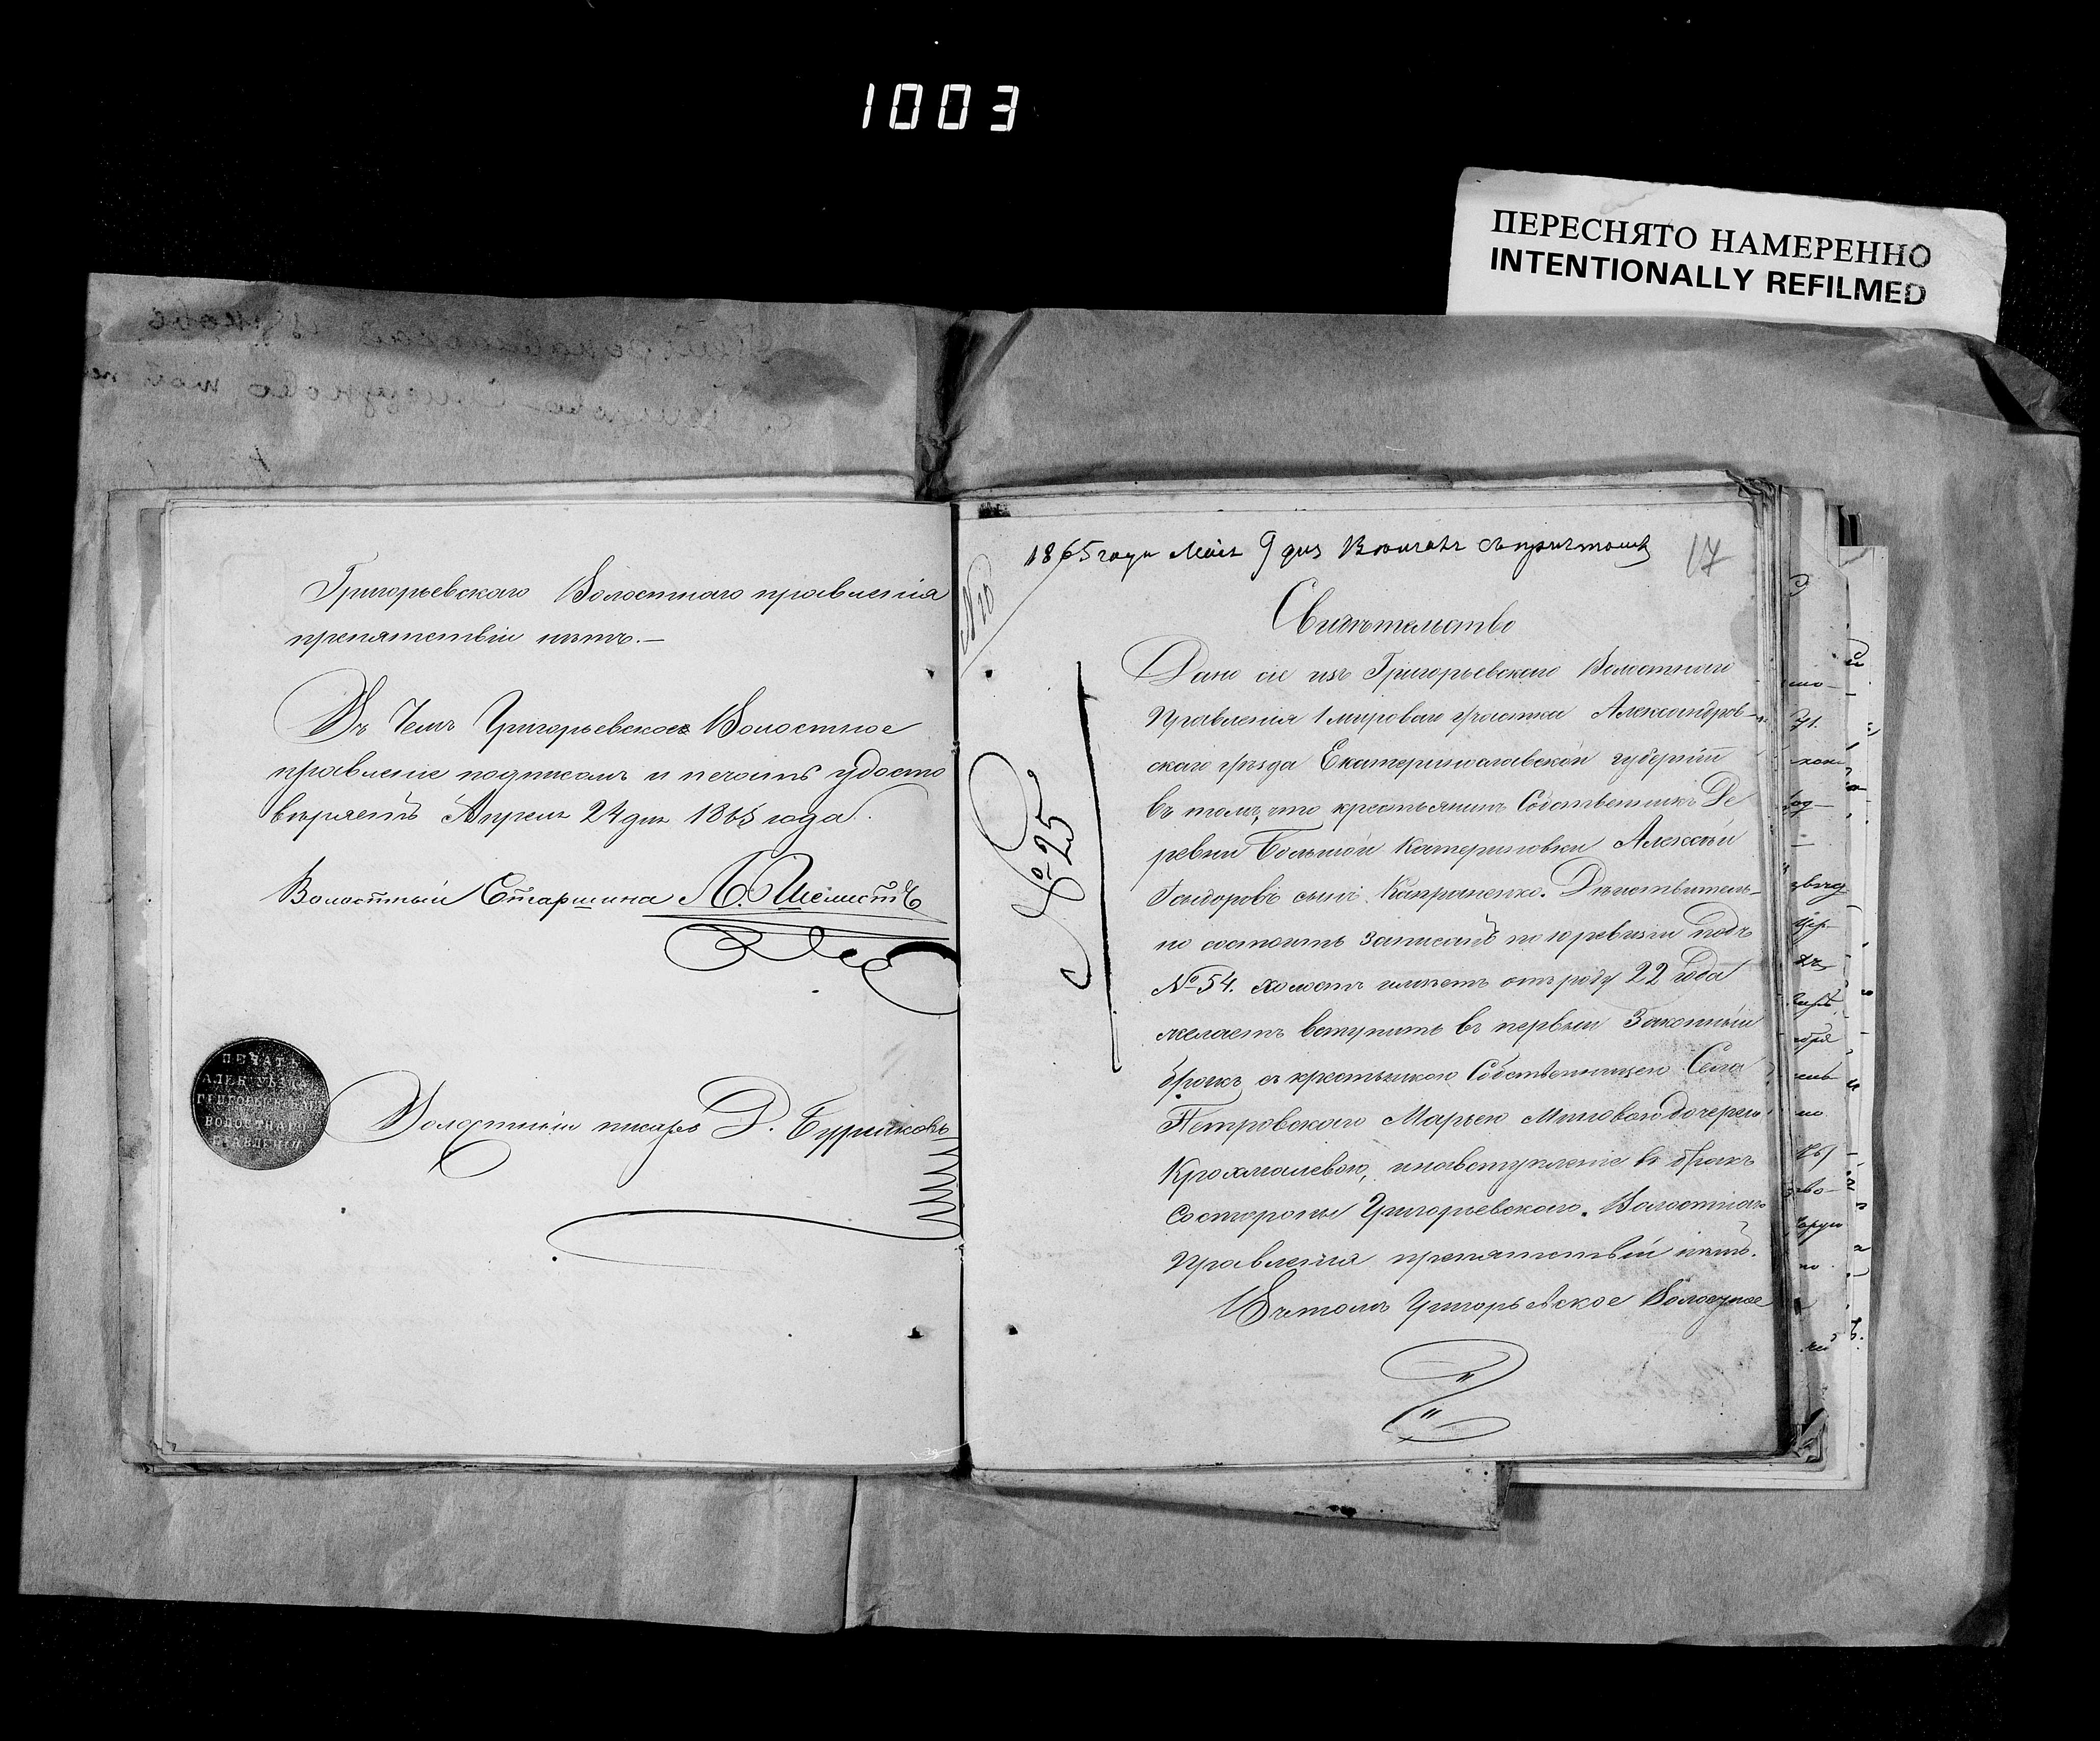 1003
ПЕРЕСНЯТО НАМЕРЕННО
INTENTIONALLY REFILMED
Григорьевскаго Волостнаго правленія
препятствій нѣтъ.—
Въ Чемъ Григорьевское Волостное
правленіе подписомъ и печатью удосто
вѣряетъ Апреля 24 дня 1865 года.
Волостный Старшина
ПЕЧАТЬ
АЛЕК. УѢЗДА
ГРИГОРЬЕВСКАГО
ВОЛОСТНАГО
ПРАВЛЕНІЯ
Волостный писарь Д.
1865 года Маія 9 дня Вѣнчанъ съ причтомъ
17
№ 25
Свидѣтельство
Дано сіе изъ Григорьевскаго Волостнаго
Правленія 1 мироваго участка Александров-
скаго уѣзда Екатеринославской губерніи
въ томъ, что крестьянинъ Собственникъ Де
ревни Большой Катериновки Алексѣй
сынъ Дѣйствитель-
но состоитъ Записанъ по 10 ревизіи подъ
№ 54. холостъ имѣетъ отъ роду 22 года
желаетъ вступить въ первый Законный
бракъ съ крестьянкою Собственницею Села
Петровскаго Марьею дочерью
Крохмалевою, инавступленіе въ бракъ
Состороны Григорьевскаго Волостнаго
Правленія препятствій нѣтъ.
Въ томъ Григорьевское Волостное